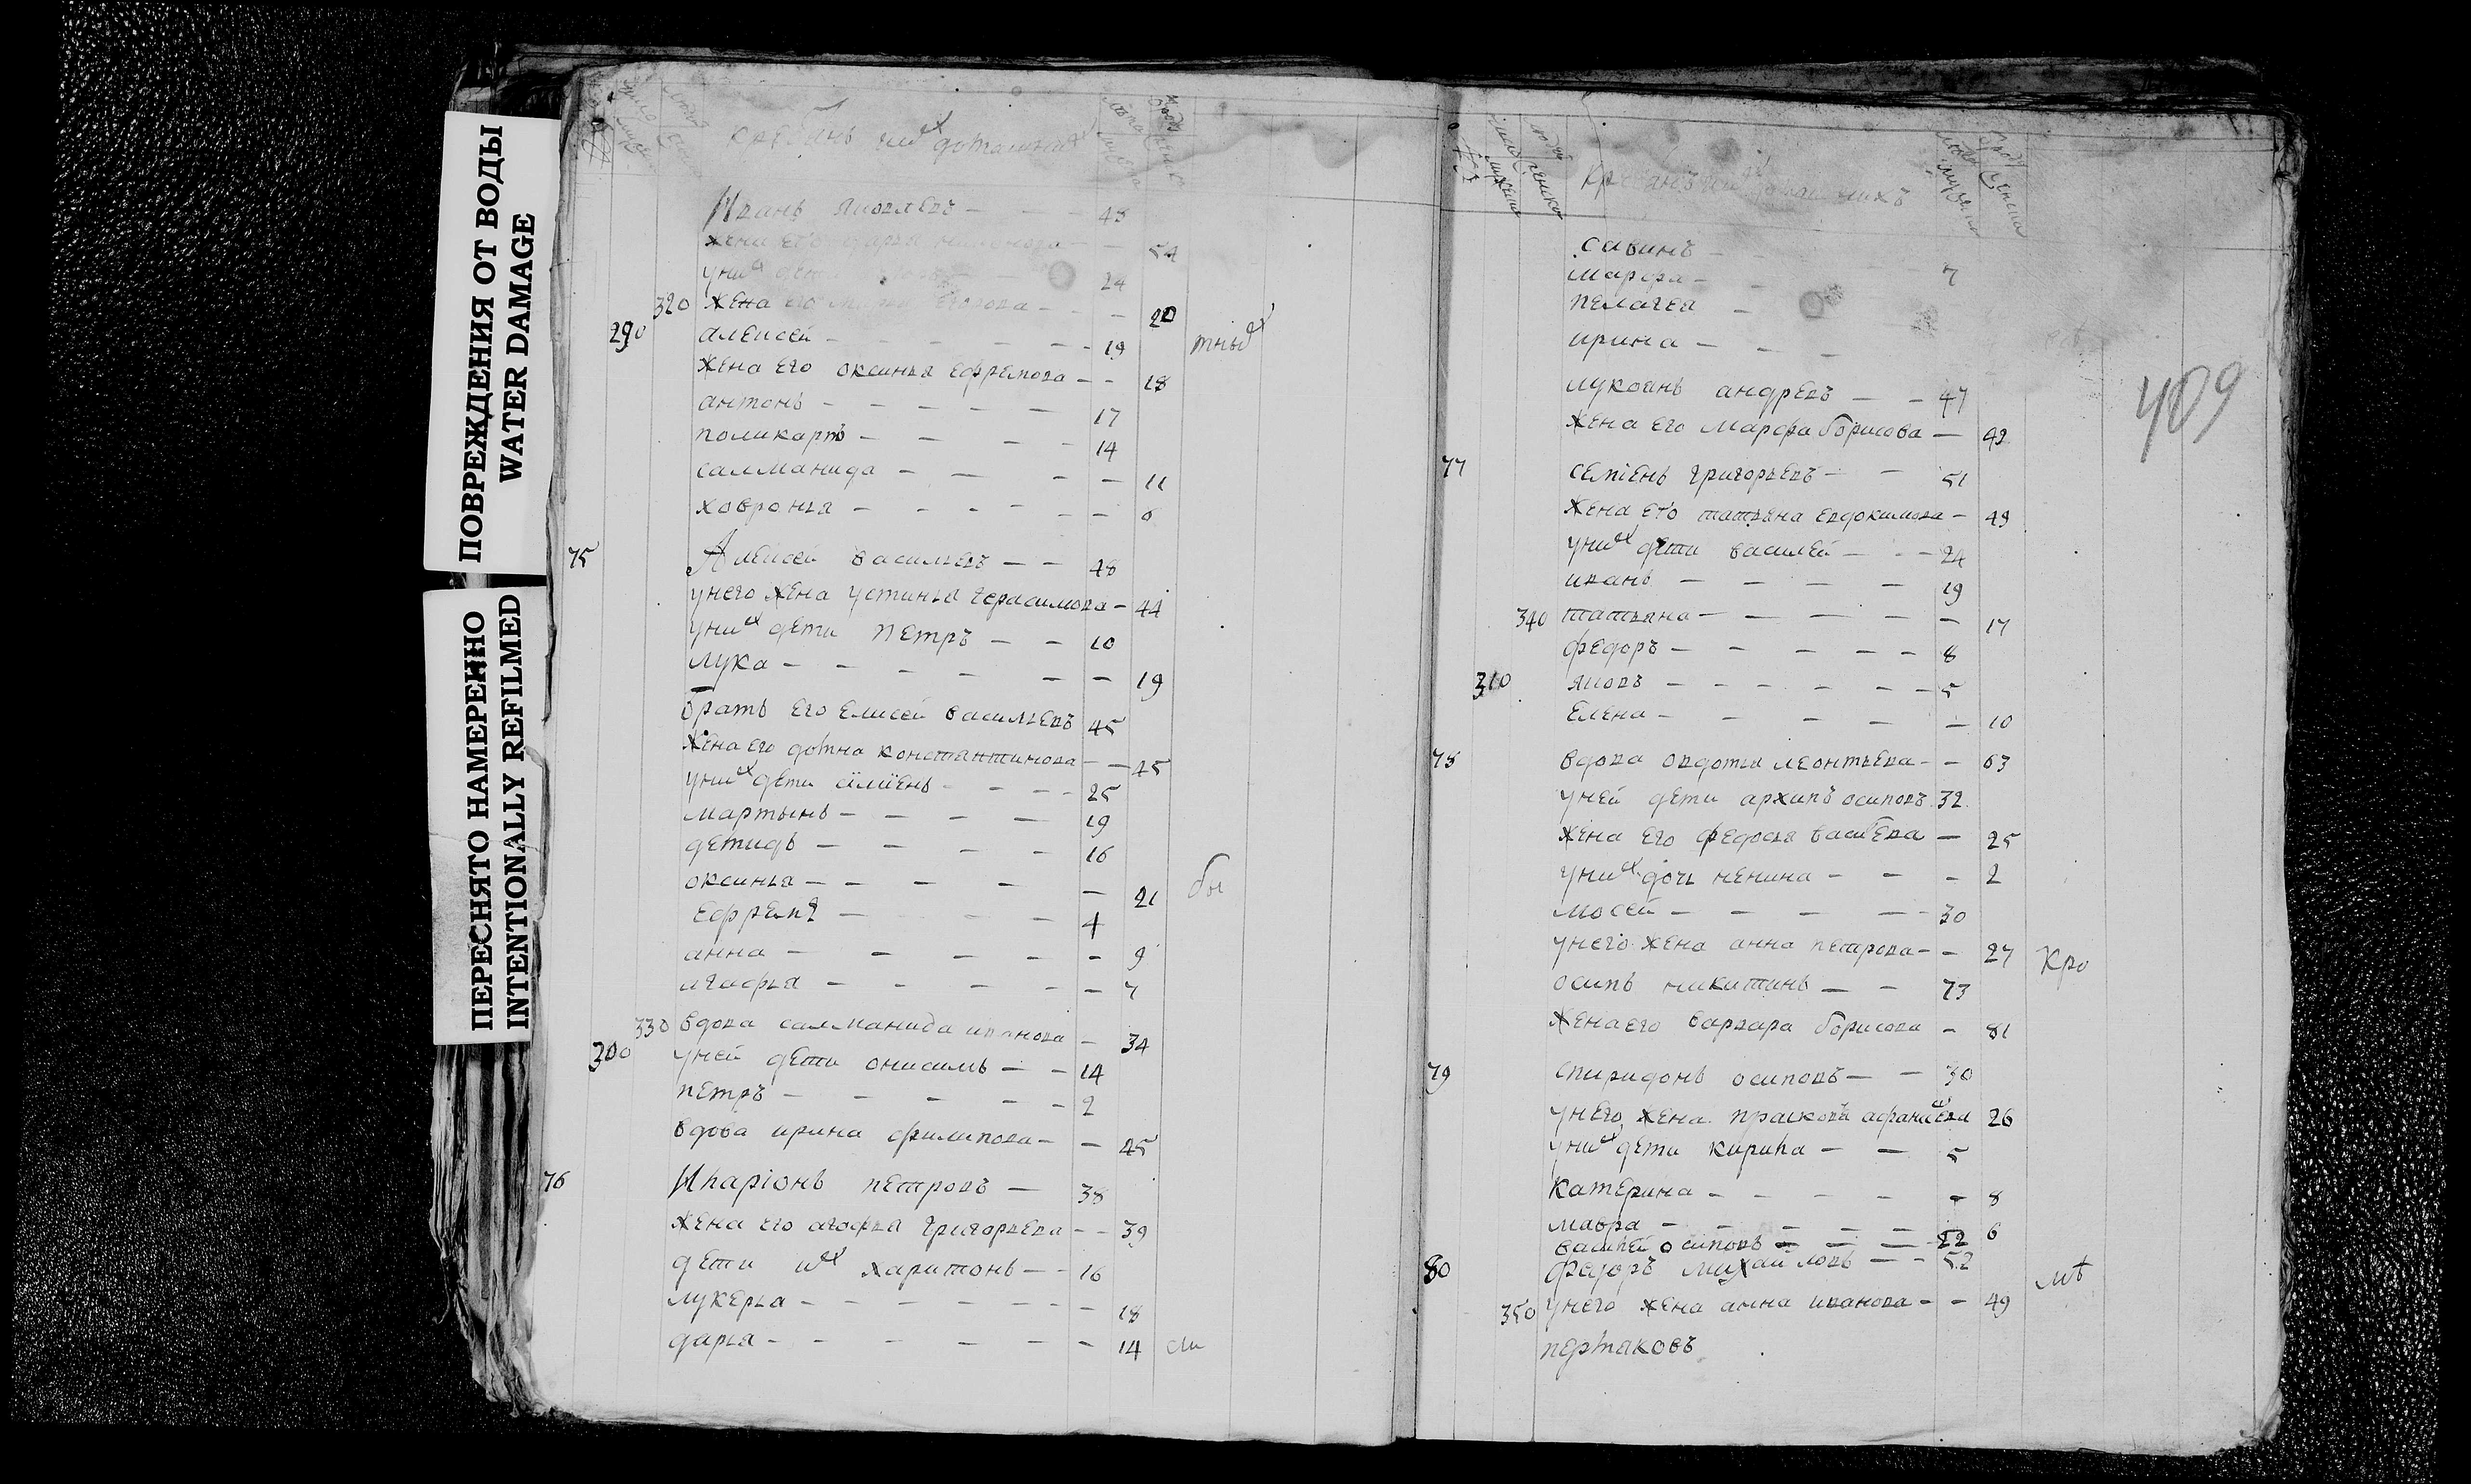 ПОВРЕЖДЕНИЯ ОТ ВОДЫ
WATER DAMAGE
ПЕРЕСНЯТО НАМЕРЕННО
INTENTIONALLY REFILMED
Иванъ яковлевъ - - - 43
жена его дарья - - 54
у них дети - - 24
320 жена его марья егорова - - - 20
290 алексей - - - - - - 19 тных
жена его оксинья ефремова - - 18
антонъ - - - - - 17
поликарпъ - - - - 14
салманида - - - - 11
ховронья - - - - - - 6
75 Алексей васильевъ - - 48
у него жена устинья герасимова - 44
у них дети петръ - - 10
лука - - - - - - 19
братъ его елисей васильевъ 45
жена его фотина константинова - - 45
у них дети симиенъ - - - - 25
мартынъ - - - - 19
демидъ - - - - 16
оксинья - - - - - 21 бы
ефремъ - - - - 4
анна - - - - - 9
агафья - - - - - - 7
330 вдова салманида иванова - 34
300 у ней дети онисимъ - - 14
петръ - - - - - - 2
вдова ирина филипова - - 45
76 Иларiонъ петровъ - 38
жена его агофья григорьева - - 39
дети их харитонъ - - 16
лукерья - - - - - - - 18
дарья - - - - - - 14 ли
409
савинъ - - 7
марфа - -
пелагея -
ирина - - -
лукоянъ андревъ - - 47
жена его марфа борисова - 42
77 семiенъ григорьевъ - - 51
жена его татьяна евдокимова - 49
у них дети василей - - - 24
иванъ - - - - 19
340 татьяна - - - - - 17
федоръ - - - - - 8
310 яковъ - - - - - - 5
елена - - - - - 10
78 вдова овдотья леонтьева - - 63
у ней дети архипъ осиповъ 32
жена его федосья васильева - 25
у них дочь ненина - - - 2
мосей - - - - - 30
у него жена анна петрова - - 27 кро
осипъ никитинъ - - 73
жена его варвара борисова - 81
79 спиридонъ осиповъ - - 30
у него жена прасковья афанасева 26
у них дети кирила - - 5
катерина - - - - - 8
мавра - - - - - 6
василей осиповъ - - - 22
80 федоръ михайловъ - - 52 мѣ
350 у него жена анна иванова - - 49
пермяковъ